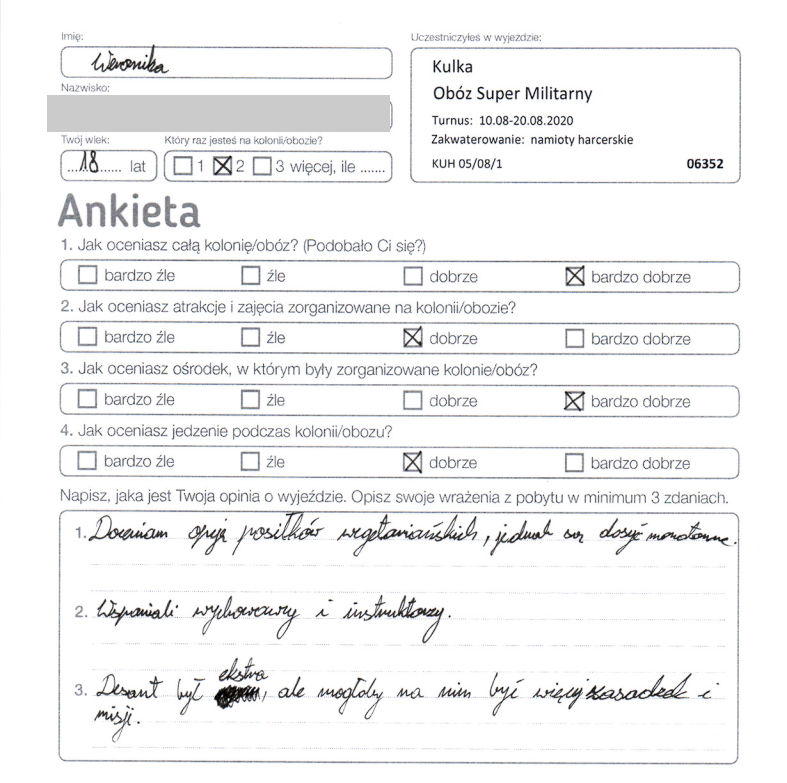 Imię:
Weronika
Nazwisko:
Twój wiek:
...18...... lat
Który raz jesteś na kolonii/obozie?
1 2 3 więcej, ile .......
Uczestniczyłeś w wyjeździe:
Kulka
Obóz Super Militarny
Turnus: 10.08-20.08.2020
Zakwaterowanie: namioty harcerskie
KUH 05/08/1 06352
Ankieta
1. Jak oceniasz całą kolonię/obóz? (Podobało Ci się?)
bardzo źle źle dobrze bardzo dobrze
2. Jak oceniasz atrakcje i zajęcia zorganizowane na kolonii/obozie?
bardzo źle źle dobrze bardzo dobrze
3. Jak oceniasz ośrodek, w którym były zorganizowane kolonie/obóz?
bardzo źle źle dobrze bardzo dobrze
4. Jak oceniasz jedzenie podczas kolonii/obozu?
bardzo źle źle dobrze bardzo dobrze
Napisz, jaka jest Twoja opinia o wyjeździe. Opisz swoje wrażenia z pobytu w minimum 3 zdaniach.
1. Doceniam opcję posiłków wegetariańskich, jednak są dosyć monotonne.
2. Wspaniali wychowawcy i instruktorzy.
3. Desant był ekstra, ale mogłoby na nim być więcej zasadzek i
misji.